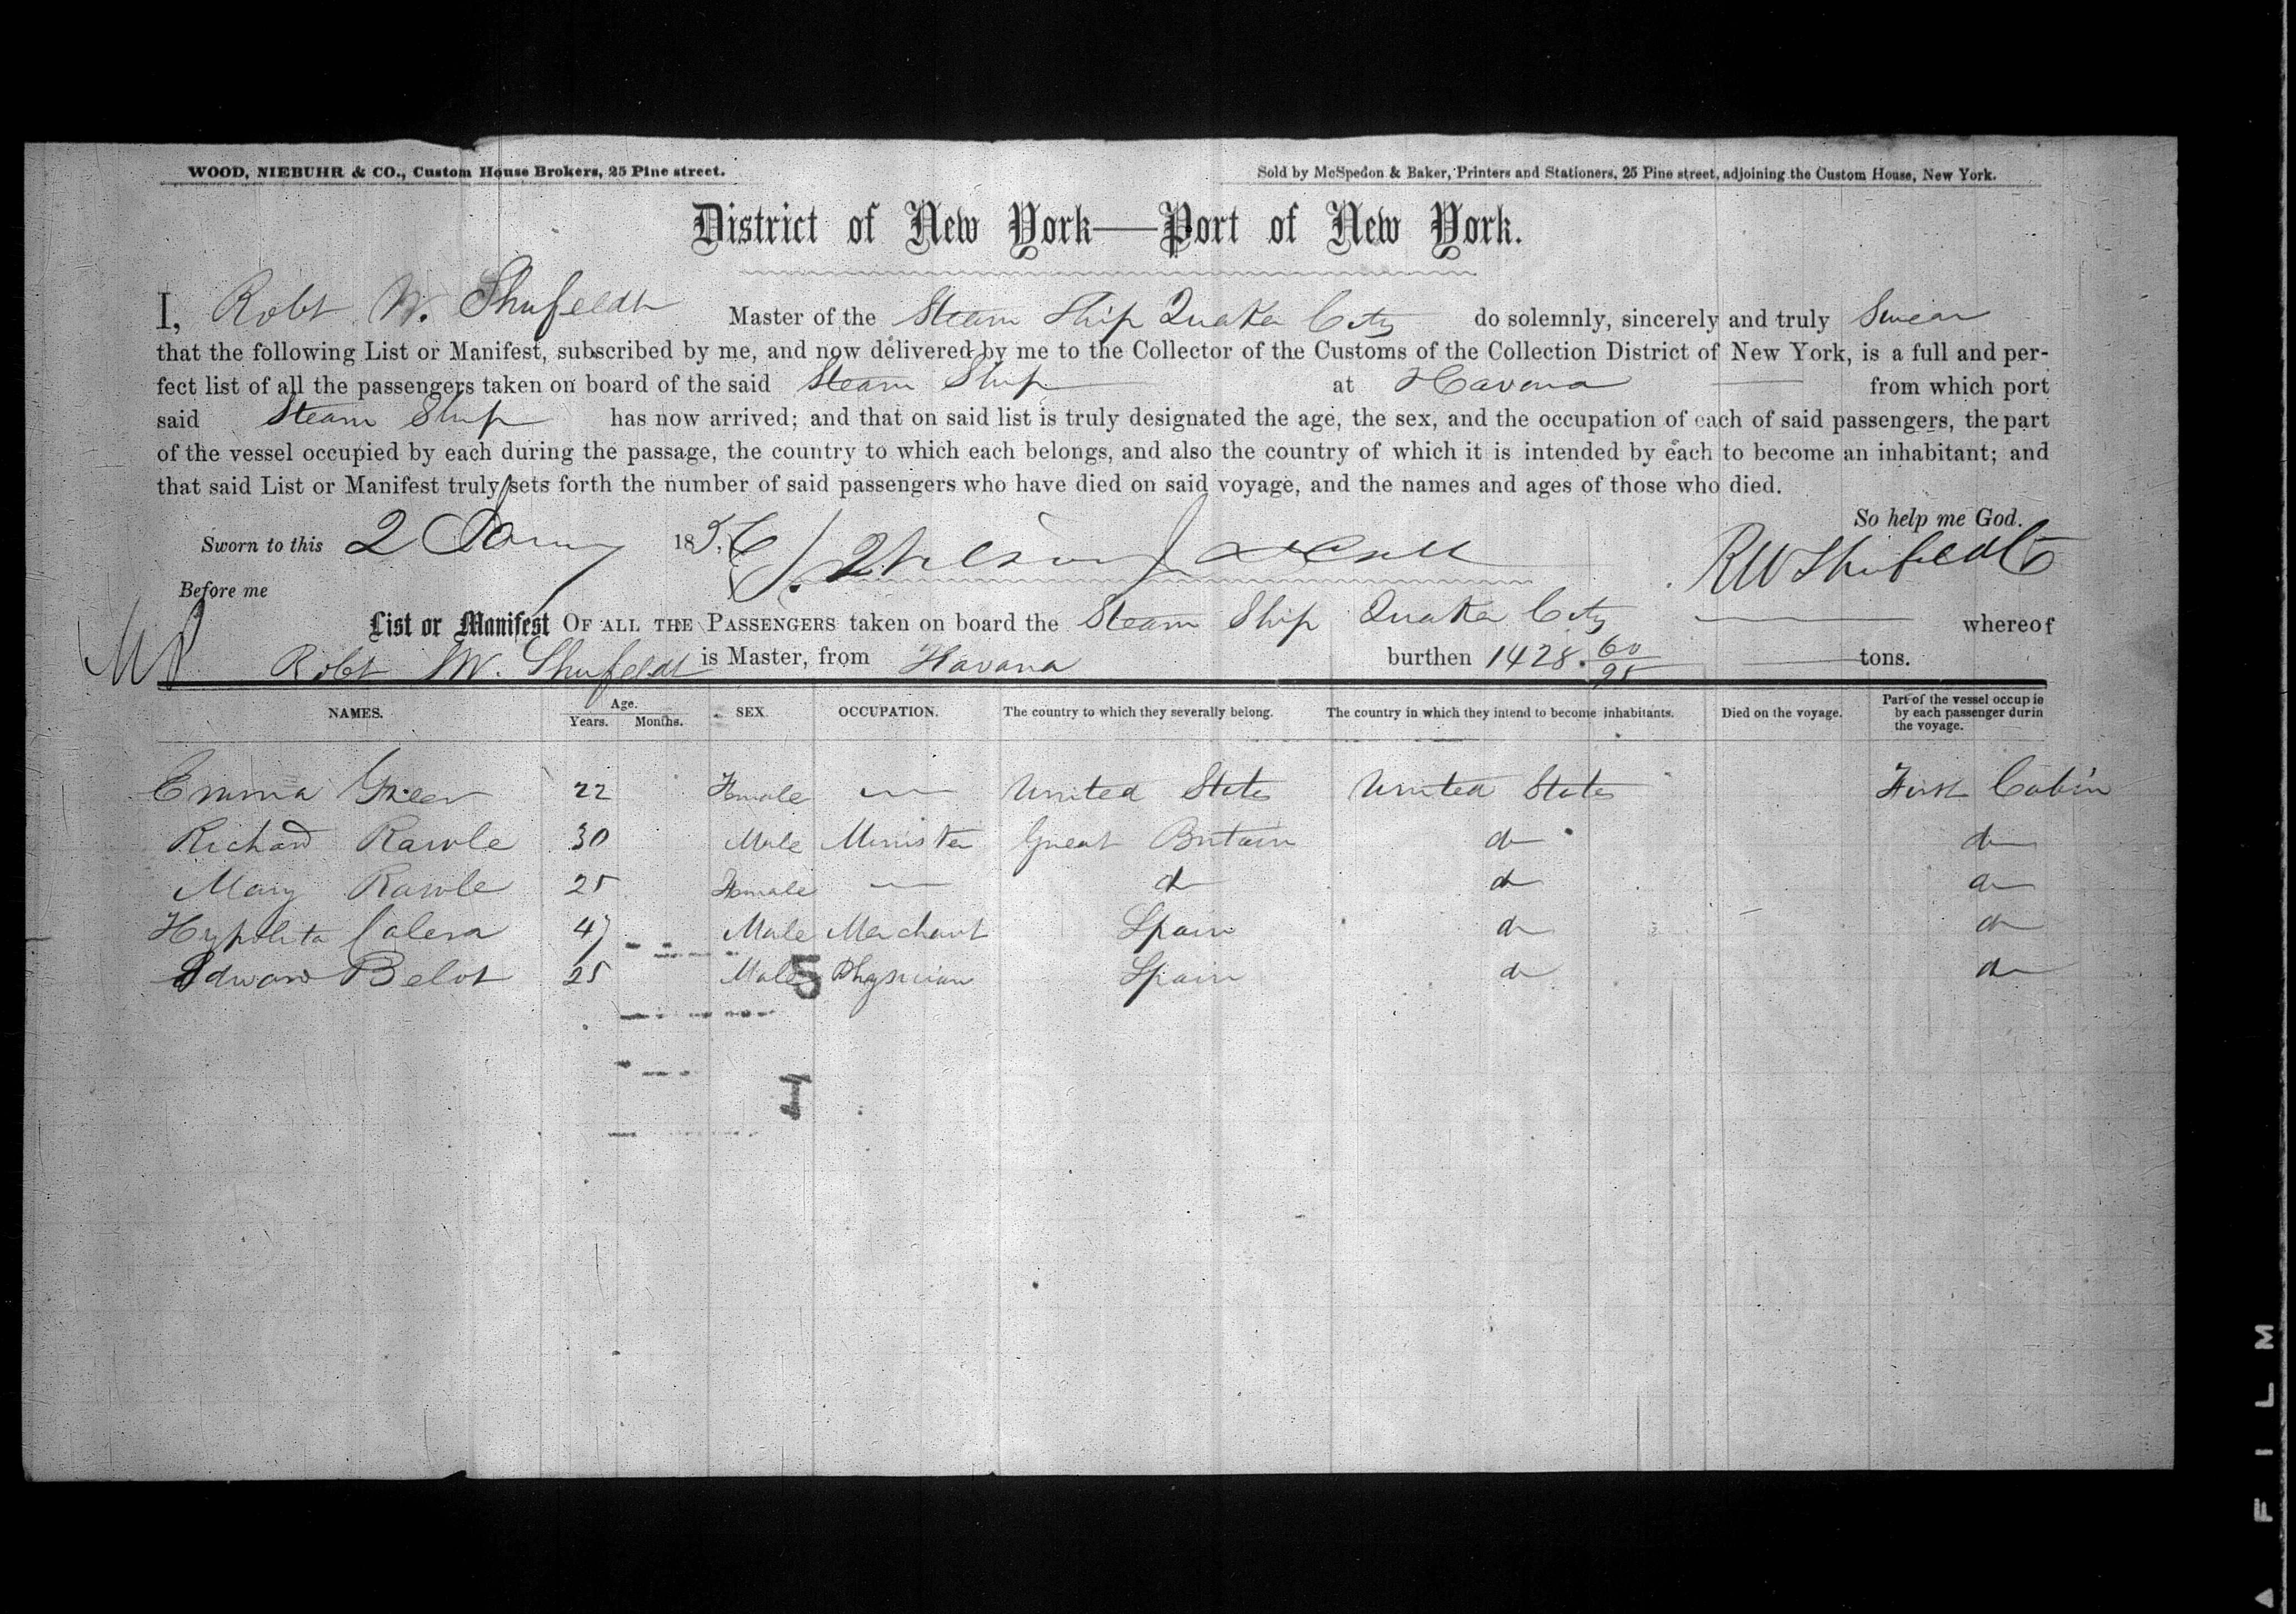 WOOD, NIEBUHR & CO., Custom House Brokers, 25 Pine street.
Sold by McSpedon & Baker, Printers and Stationers, 25 Pine street, adjoining the Custom House, New York.
District of New York—Port of New York.
I, Robt W. Shufeldt Master of the Steam Ship Quaker City do solemnly, sincerely and truly Swear
that the following List or Manifest, subscribed by me, and now delivered by me to the Collector of the Customs of the Collection District of New York, is a full and per-
fect list of all the passengers taken on board of the said Steam Ship at Havana from which port
said Steam Ship has now arrived; and that on said list is truly designated the age, the sex, and the occupation of each of said passengers, the part
of the vessel occupied by each during the passage, the country to which each belongs, and also the country of which it is intended by each to become an inhabitant; and
that said List or Manifest truly sets forth the number of said passengers who have died on said voyage, and the names and ages of those who died.
So help me God.
Sworn to this 2 Jany 1856 RW Shufeldt
Before me
List or Manifest OF ALL THE PASSENGERS taken on board the Steam Ship Quaker City whereof
Robt W. Shufeldt is Master, from Havana burthen 1428. 60/95 tons.
NAMES. Age. Years. Months. SEX. OCCUPATION. The country to which they severally belong. The country in which they intend to become inhabitants. Died on the voyage. Part of the vessel occupie by each passenger durin the voyage.
Emma Green 22 Female — United States United States First Cabin
Richard Rawle 30 Male Minister Great Britain do do
Mary Rawle 25 Female — do do do
Hypolita Calera 47 Male Merchant Spain do do
Edward Belot 25 Male Physician Spain do do
5
1
A FILM